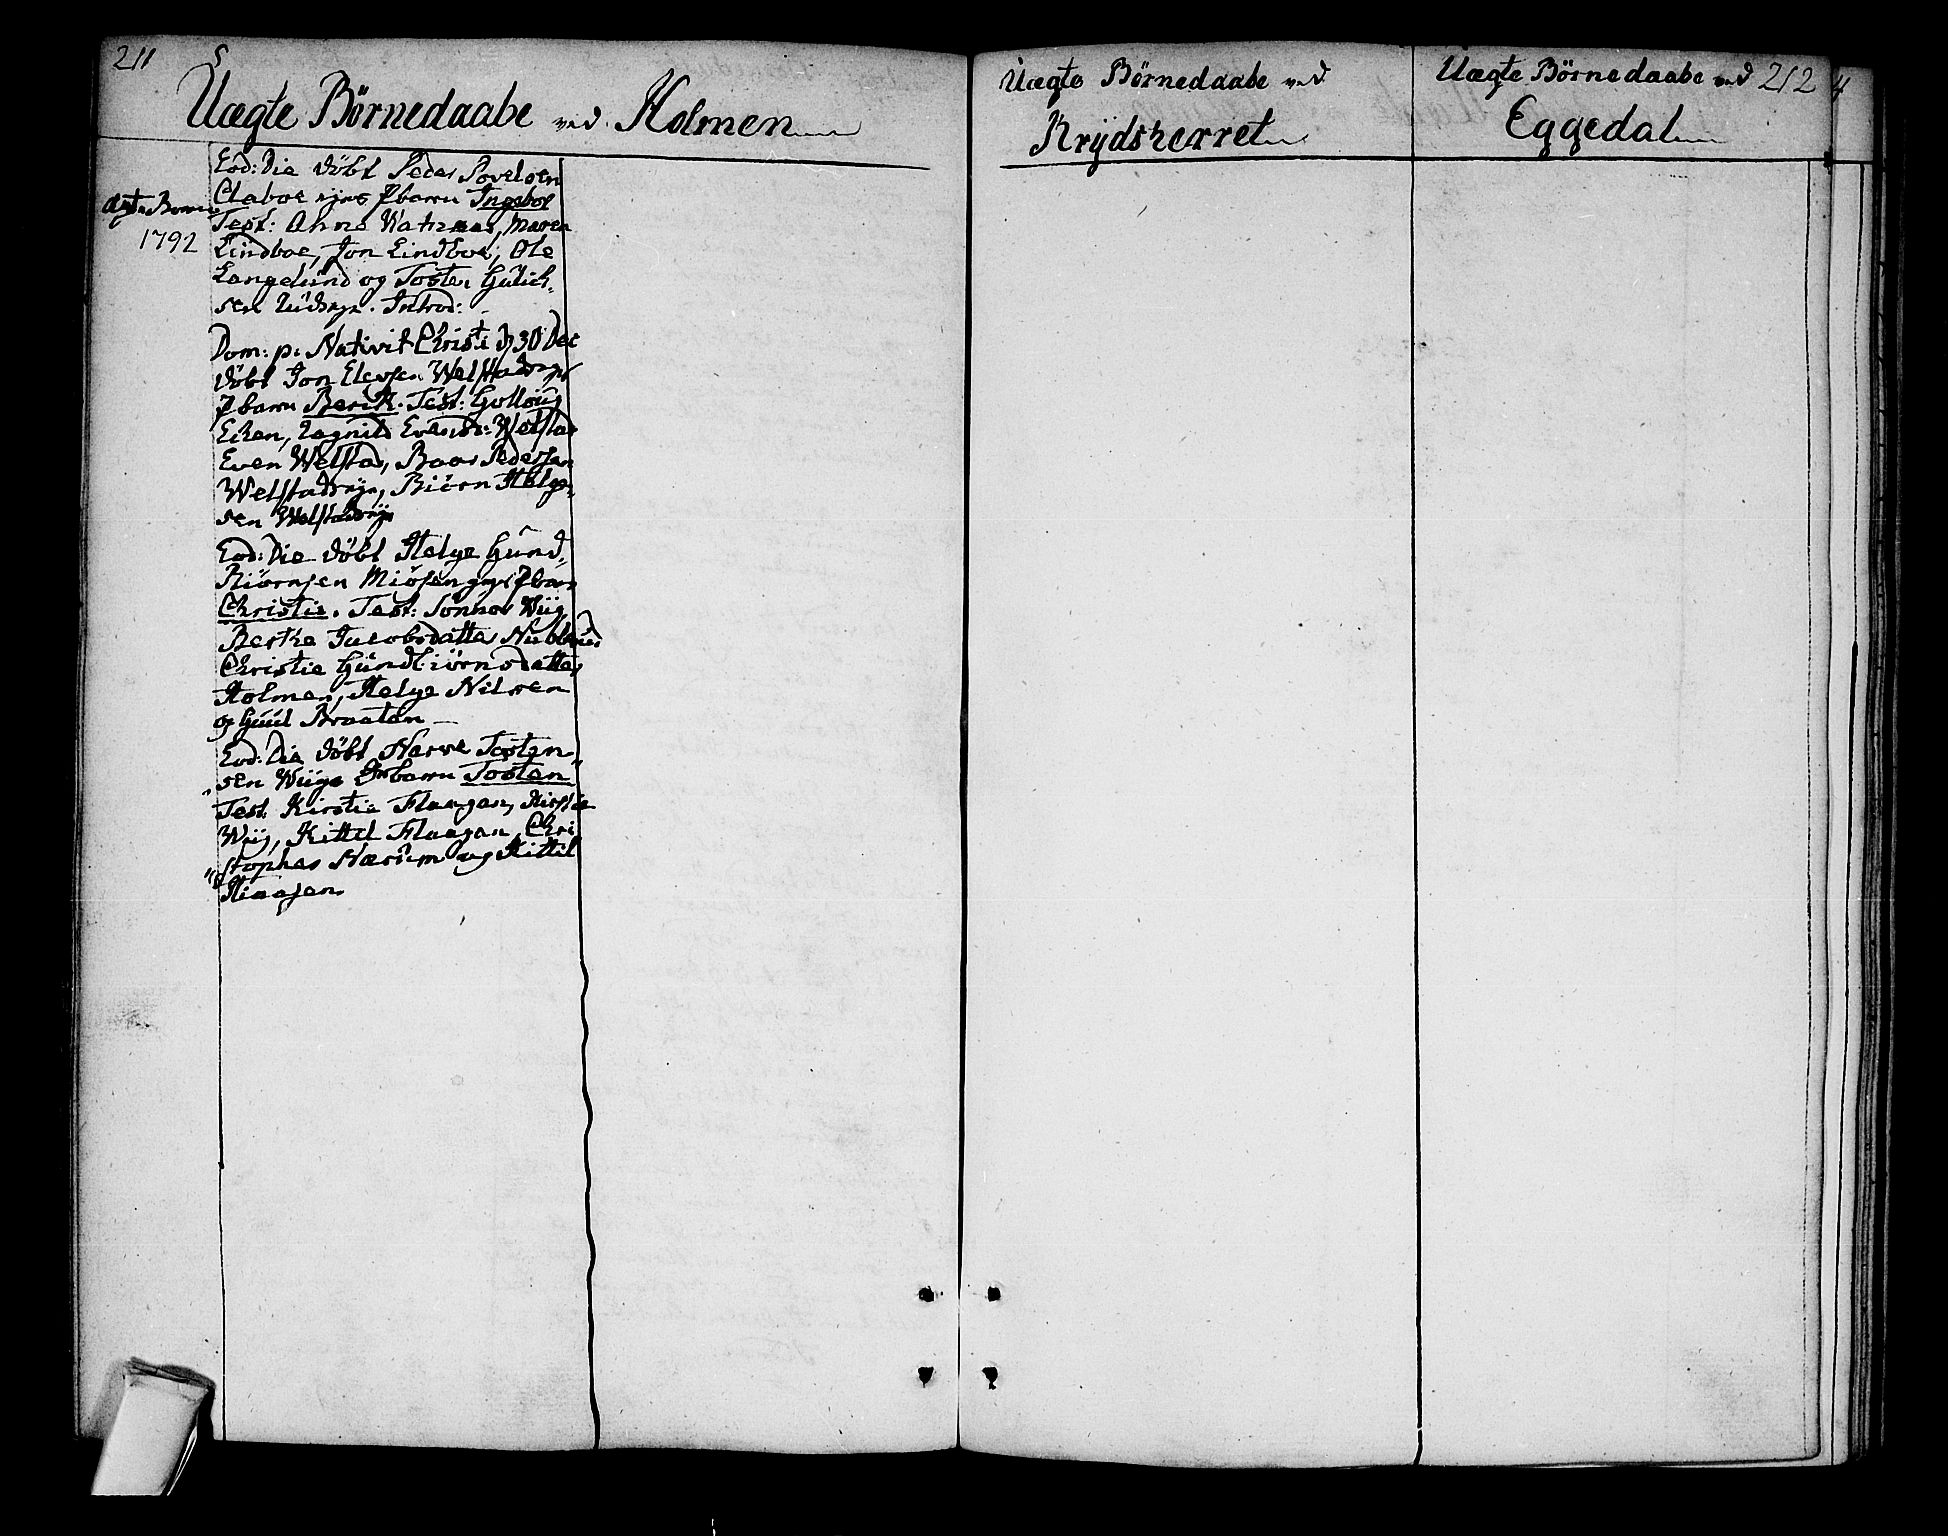 211
Uægte Børnedaabe ved Holmen
ægte Børn
1792
Eod: Die døbt Peder Povelsen
Claboe ejes P barn Ingebor
Test: Anne Katrines, Maren
Lindboe, Jon Lindboe, Ole
Langelund og Tosten Gulich-
sen Ludseje. Introd:
Dom: p. Nativit Christi d 30 Dec
døbt Jon Elevsen Welstadseje
P barn Berit. Test: Golloug
Eken, Ragnild Evensdr: Welstad
Even Welstad, Baar Pedersen
Welstadseje, Biørn Helge-
sen Welstadeje
Eod: Die døbt Helge Gund-
Biørnsen Miøsengejes P barn
Christie. Test: Sønnov Wiig
Berthe Jacobsdatter Nubberud
Christie Gundbiørnsdatter
Holmen, Helge Nilsen
og Guul Braaten
Eod: Die døbt Narve Tosten-
sen Wiigs Drbarn Tosten
Test: Kirstie Flaagan, Kirstie
Wiig, Kittil Flaagan, Chri
stopher Nærum og Kittil
Haagen
Uægte Børnedaabe ved
Krydsherret
Uægte Børnedaabe ved 212
Eggedal